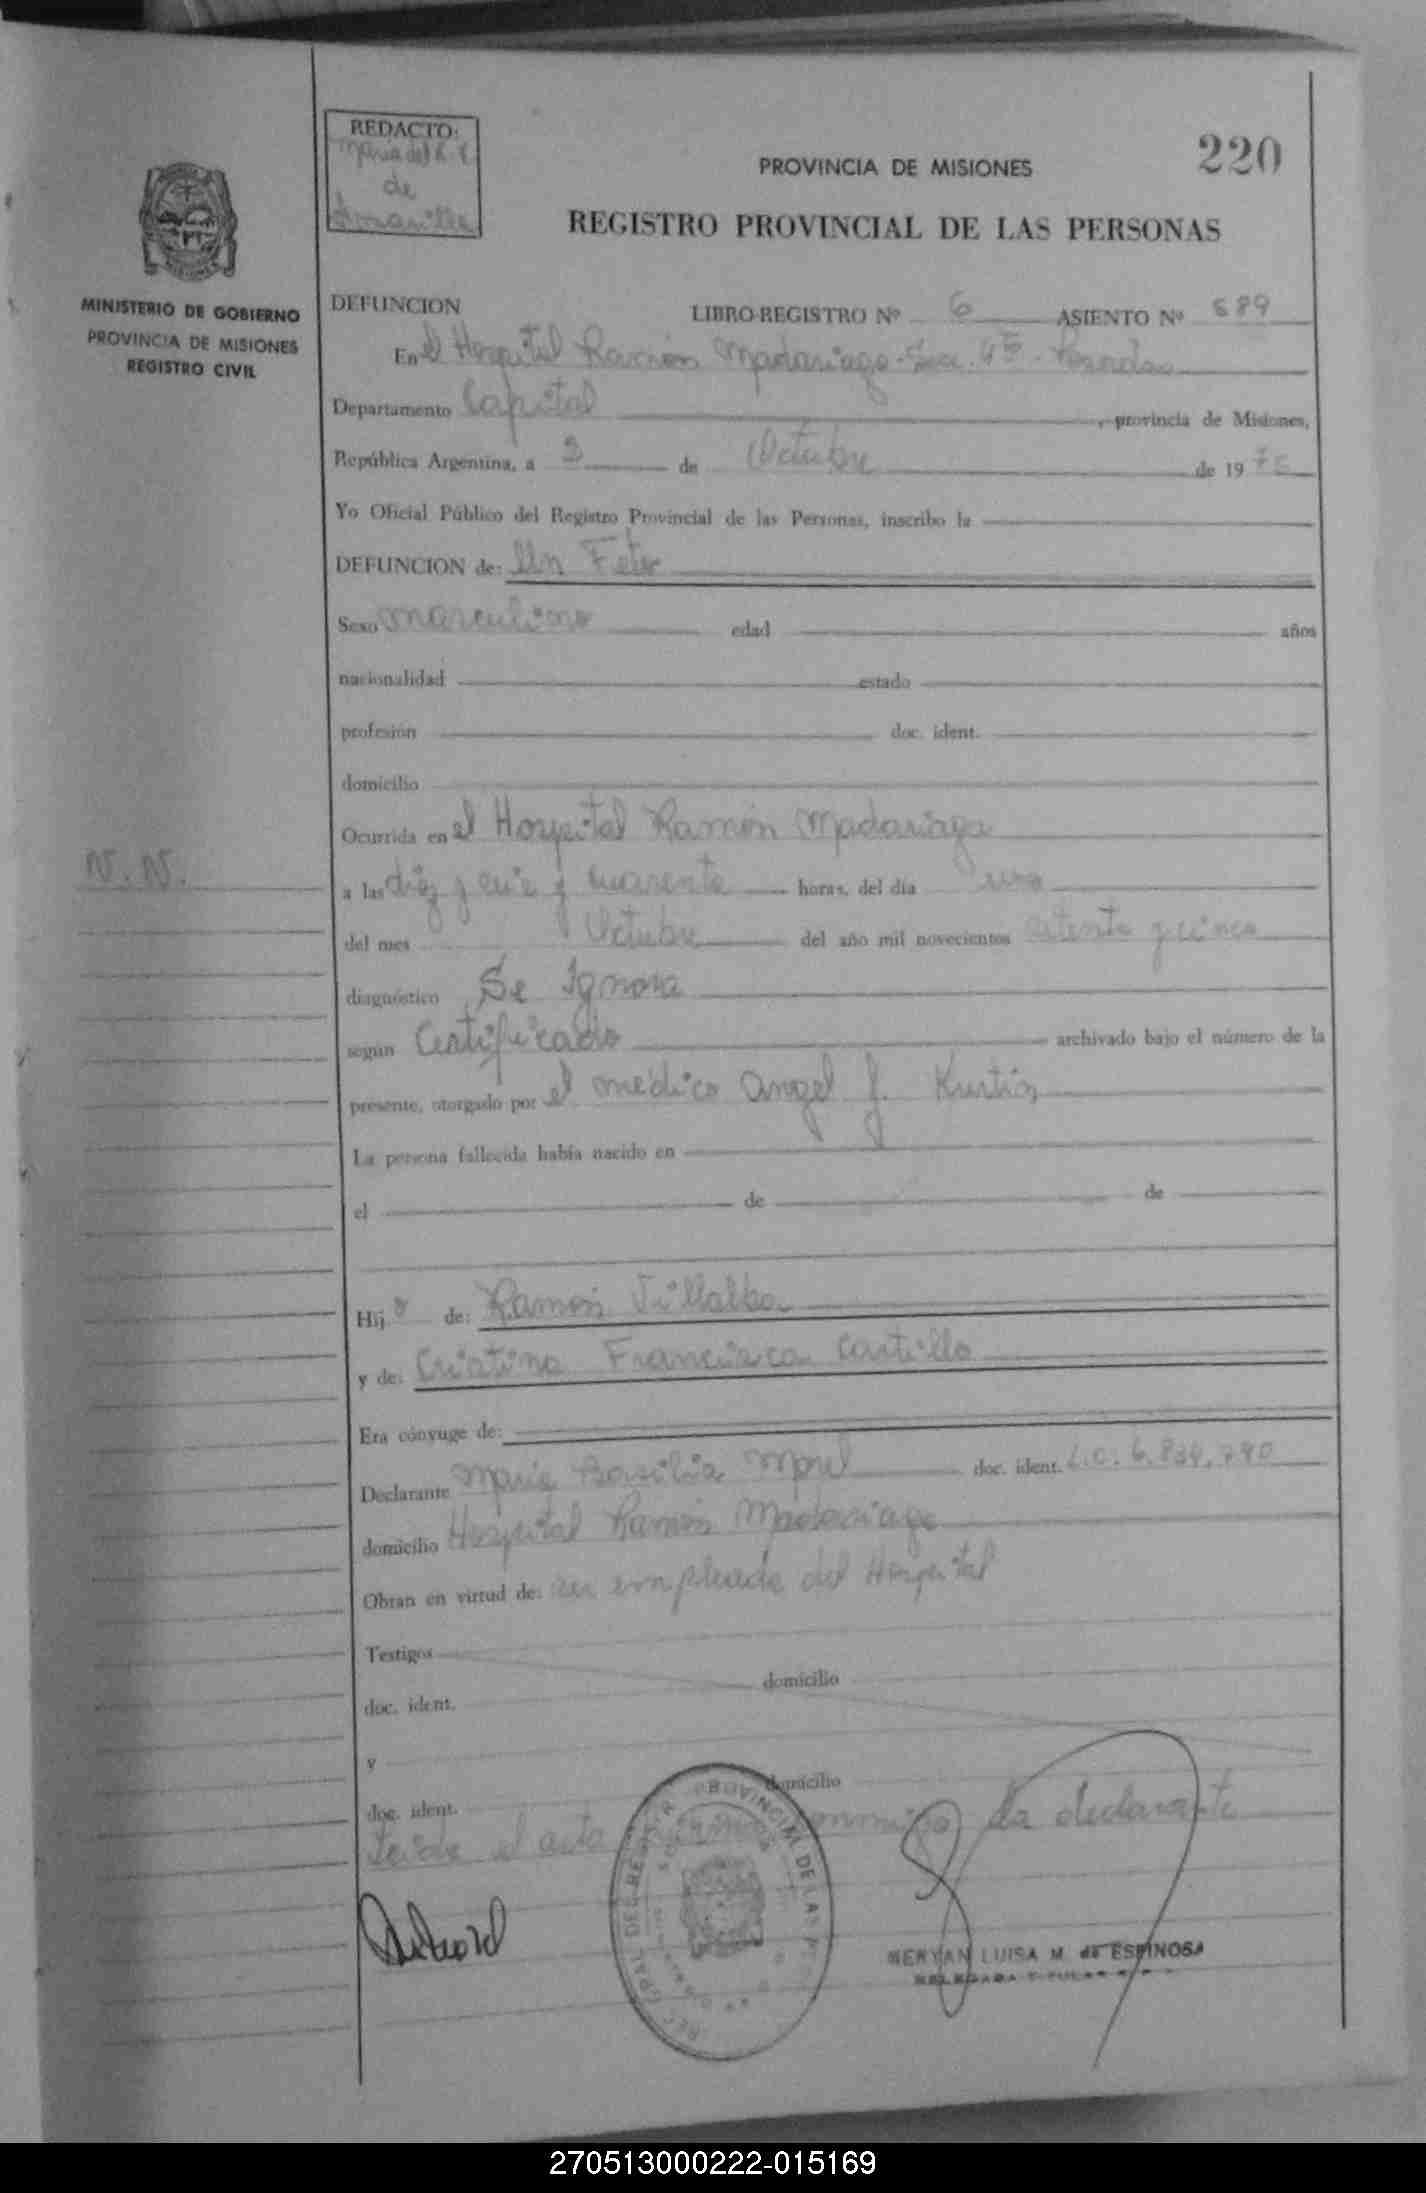 REDACTO:
de
220
PROVINCIA DE MISIONES
REGISTRO PROVINCIAL DE LAS PERSONAS
MINISTERIO DE GOBIERNO
PROVINCIA DE MISIONES
REGISTRO CIVIL
DEFUNCION LIBRO-REGISTRO Nº 6 ASIENTO Nº 689
En el Hospital Ramón Madariaga - Sec. 4ta - Posadas
Departamento Capital, provincia de Misiones,
República Argentina, a 3 de Octubre de 1975
Yo Oficial Público del Registro Provincial de las Personas, inscribo la
DEFUNCION de: Un Feto
Sexo masculino edad años
nacionalidad estado
profesión doc. ident.
domicilio
Ocurrida en el Hospital Ramón Madariaga
N. N.
a las diez y seis y cuarenta horas, del día uno
del mes Octubre del año mil novecientos setenta y cinco
diagnóstico Se Ignora
según Certificado archivado bajo el número de la
presente, otorgado por el médico Angel J. Kurtis
La persona fallecida había nacido en
el de de
Hijo de: Ramón Villalba
y de: Cristina Francisca Castillo
Era cónyuge de:
Declarante Maria Basilia Morel doc. ident. L.C. 6.834.790
domicilio Hospital Ramón Madariaga
Obran en virtud de: ser empleada del Hospital
Testigos
domicilio
doc. ident.
y
domicilio
doc. ident.
Leída el acta firma conmigo la declarante
PROVINCIAL DE LAS
MERYAN LUISA M. de ESPINOSA
DELEGADA TITULAR
270513000222-015169